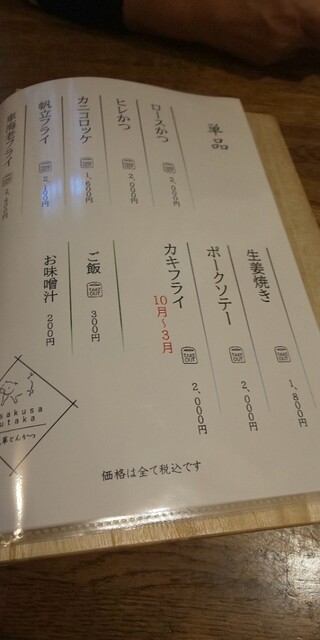 単品
ロースかつ TAKE OUT 2,000円
ヒレかつ TAKE OUT 2,000円
カニコロッケ TAKE OUT 1,600円
帆立フライ TAKE OUT 2,100円
車海老フライ TAKE OUT 2,400円
生姜焼き TAKE OUT 1,800円
ポークソテー TAKE OUT 2,000円
カキフライ 10月〜3月 TAKE OUT 2,000円
ご飯 TAKE OUT 300円
お味噌汁 200円
sakusa
utaka
草とんかつ
価格は全て税込です